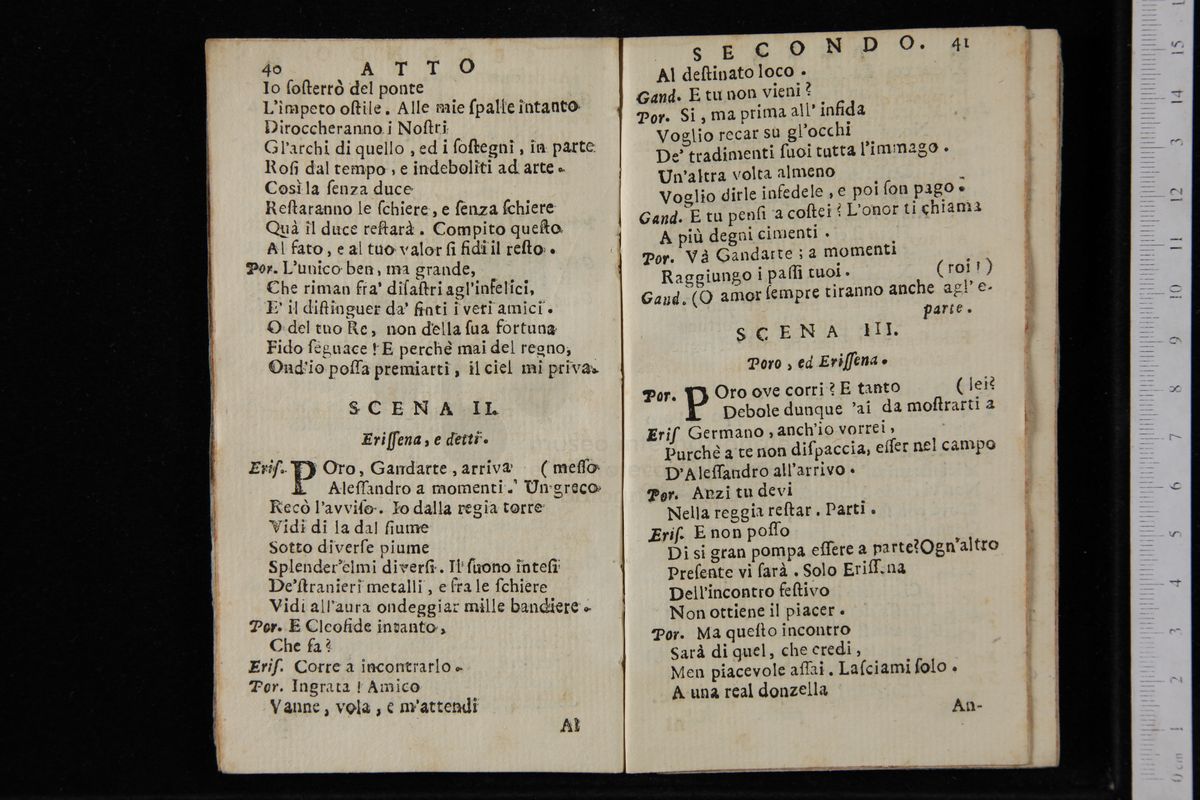 40 ATTO
Io ſoſterrò del ponte
L'impeto oſtile. Alle mie ſpalle intanto
Diroccheranno i Noſtri
Gl'archi di quello, ed i ſoſtegni, in parte
Roſi dal tempo, e indeboliti ad arte.
Così la ſenza duce
Reſtaranno le ſchiere, e ſenza ſchiere
Quà il duce reſtarà. Compito queſto
Al fato, e al tuo valor ſi fidi il reſto.
Por. L'unico ben, ma grande,
Che riman fra' diſaſtri agl'infelici,
E' il diſtinguer da' finti i veri amici.
O del tuo Re, non della ſua fortuna
Fido ſeguace! E perchè mai del regno,
Ond'io poſſa premiarti, il ciel mi priva.
SCENA II.
Eriſſena, e detti.
Eriſ. POro, Gandarte, arriva (meſſo
Aleſſandro a momenti. Un greco
Recò l'avviſo. Io dalla regia torre
Vidi di la dal fiume
Sotto diverſe piume
Splender'elmi diverſi. Il ſuono inteſi
De'ſtranieri metalli, e fra le ſchiere
Vidi all'aura ondeggiar mille bandiere.
Por. E Cleofide intanto,
Che fa?
Eriſ. Corre a incontrarlo.
Por. Ingrata! Amico
Vanne, vola, e m'attendi
Al
SECONDO. 41
Al deſtinato loco.
Gand. E tu non vieni?
Por. Si, ma prima all' infida
Voglio recar su gl'occhi
De' tradimenti ſuoi tutta l'immago.
Un'altra volta almeno
Voglio dirle infedele, e poi ſon pago.
Gand. E tu penſi a coſtei? L'onor ti chiama
A più degni cimenti.
Por. Và Gandarte; a momenti
Raggiungo i paſſi tuoi. (roi!)
Gand. (O amor ſempre tiranno anche agl' e-
parte.
SCENA III.
Poro, ed Eriſſena.
Por. POro ove corri? E tanto (lei?
Debole dunque 'ai da moſtrarti a
Eriſ Germano, anch'io vorrei,
Purchè a te non diſpaccia, eſſer nel campo
D'Aleſſandro all'arrivo.
Por. Anzi tu devi
Nella reggia reſtar. Parti.
Eriſ. E non poſſo
Di si gran pompa eſſere a parte? Ogn'altro
Preſente vi ſarà. Solo Eriſſena
Dell'incontro feſtivo
Non ottiene il piacer.
Por. Ma queſto incontro
Sarà di quel, che credi,
Men piacevole aſſai. Laſciami ſolo.
A una real donzella
An-